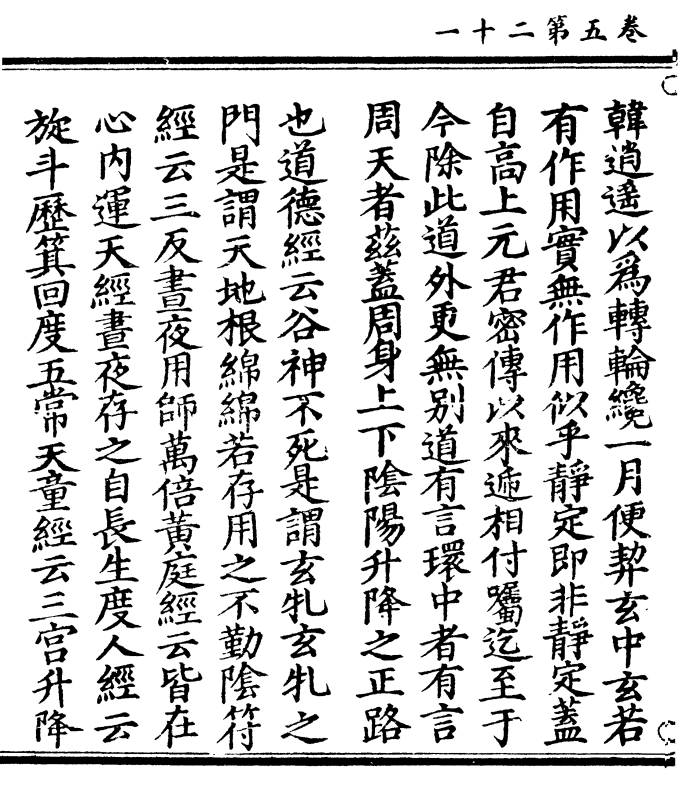 卷五第二十一
韓逍遥以爲轉輪纔一月便契玄中玄若
有作用實無作用似乎靜定即非靜定蓋
自高上元君密傳以來遞相付囑迄至于
今除此道外更無别道有言環中者有言
周天者玆蓋周身上下陰陽升降之正路
也道德經云谷神不死是謂玄牝玄牝之
門是謂天地根綿綿若存用之不勤陰符
經云三反晝夜用師萬倍黄庭經云皆在
心内運天經晝夜存之自長生度人經云
旋斗歷箕回度五常天童經云三宫升降